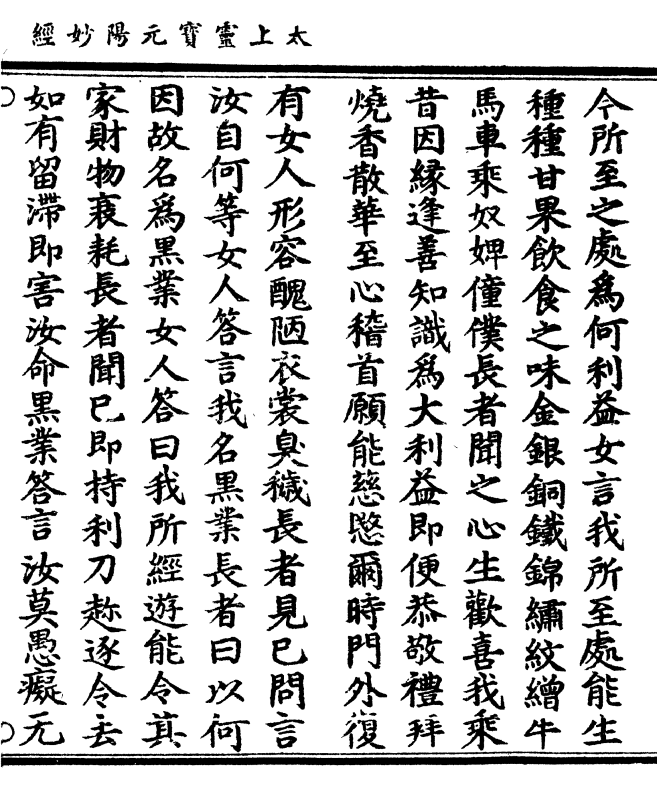 太上靈寶元陽妙經
今所至之處爲何利益女言我所至處能生
種種甘果飲食之味金銀銅鐵錦繡紋繒牛
馬車乘奴婢僮僕長者聞之心生歡喜我乘
昔因緣逢善知識爲大利益即便恭敬禮拜
燒香散華至心稽首願能慈愍爾時門外復
有女人形容醜陋衣裳臭穢長者見已問言
汝自何等女人答言我名黑業長者曰以何
因故名爲黑業女人答曰我所經遊能令其
家財物衰耗長者聞已即持利刀趂逐令去
如有留滯即害汝命黑業答言汝莫愚癡无